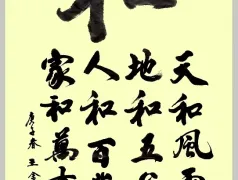 和
天和風
地和五
人和百
家和萬
庚子春 王